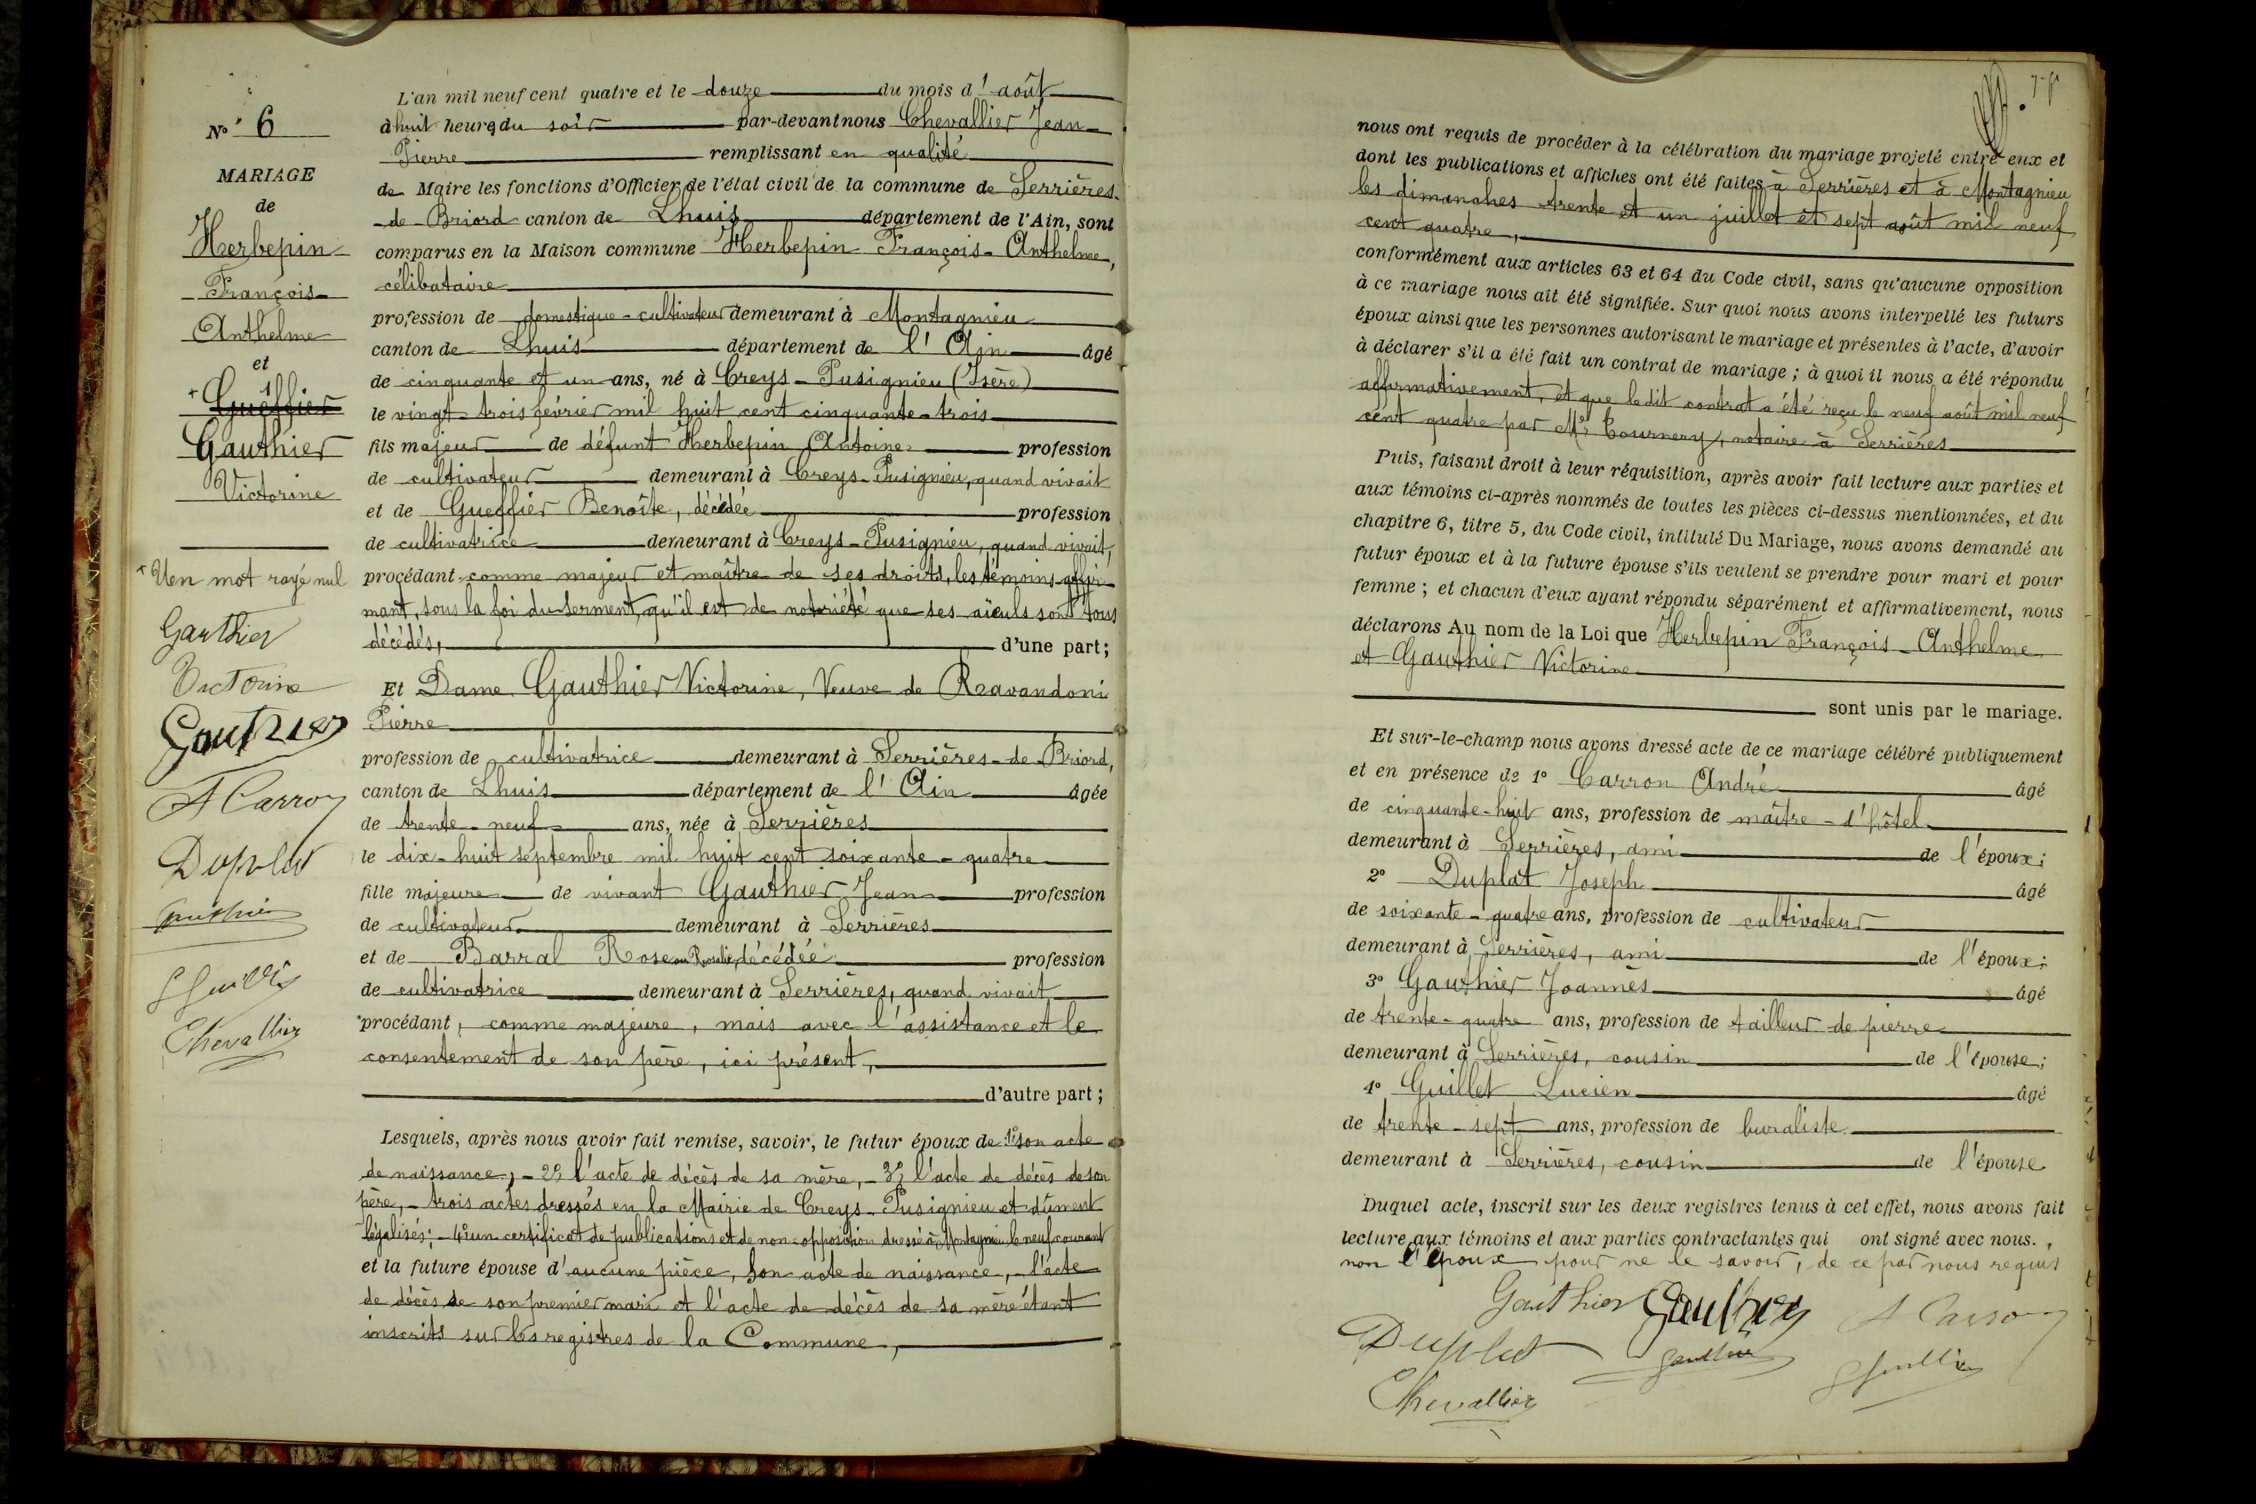 N° 6
MARIAGE
de
Herbepin
François-
Anthelme
et
+ Gueffier
Gauthier
Victorine
+ Un mot rayé nul
Gauthier
Victorine
Gauthier
A Carron
Duplat
Gauthier
Chevallier
L'an mil neuf cent quatre et le douze du mois d'août
à huit heures du soir par-devant nous Chevallier Jean-
Pierre remplissant en qualité
de Maire les fonctions d'Officier de l'état civil de la commune de Serrières-
-de-Briord canton de Lhuis département de l'Ain, sont
comparus en la Maison commune Herbepin François-Anthelme,
célibataire
profession de domestique-cultivateur demeurant à Montagnieu
canton de Lhuis département de l'Ain âgé
de cinquante et un ans, né à Creys-Pusignieu (Isère)
le vingt-trois février mil huit cent cinquante-trois
fils majeur de défunt Herbepin Antoine profession
de cultivateur demeurant à Creys-Pusignieu, quand vivait
et de Gueffier Benoîte, décédée profession
de cultivatrice demeurant à Creys-Pusignieu, quand vivait,
procédant comme majeur et maître de ses droits, les témoins affir-
mant, sous la foi du serment, qu'il est de notoriété que ses aïeuls sont tous
décédés, d'une part;
Et Dame Gauthier Victorine, Veuve de Ravandoni
Pierre
profession de cultivatrice demeurant à Serrières-de-Briord,
canton de Lhuis département de l'Ain âgée
de trente-neuf ans, née à Serrières
le dix-huit septembre mil huit cent soixante-quatre
fille majeure de vivant Gauthier Jean profession
de cultivateur demeurant à Serrières
et de Barral Rose ou Rosalie, décédée profession
de cultivatrice demeurant à Serrières, quand vivait
procédant, comme majeure, mais avec l'assistance et le
consentement de son père, ici présent,
d'autre part;
Lesquels, après nous avoir fait remise, savoir, le futur époux de 1° son acte
de naissance, - 2° l'acte de décès de sa mère, - 3° l'acte de décès de son
père, - trois actes dressés en la Mairie de Creys-Pusignieu et dûment
légalisés; - 4° un certificat de publications et de non-opposition dressé à Montagnieu le neuf courant
et la future épouse d'aucune pièce, son acte de naissance, - l'acte
de décès de son premier mari et l'acte de décès de sa mère étant
inscrits sur les registres de la Commune,
nous ont requis de procéder à la célébration du mariage projeté entre eux et
dont les publications et affiches ont été faites à Serrières et à Montagnieu
les dimanches trente et un juillet et sept août mil neuf
cent quatre,
conformément aux articles 63 et 64 du Code civil, sans qu'aucune opposition
à ce mariage nous ait été signifiée. Sur quoi nous avons interpellé les futurs
époux ainsi que les personnes autorisant le mariage et présentes à l'acte, d'avoir
à déclarer s'il a été fait un contrat de mariage; à quoi il nous a été répondu
affirmativement, et que ledit contrat a été reçu le neuf août mil neuf
cent quatre par Me Tournery, notaire à Serrières
Puis, faisant droit à leur réquisition, après avoir fait lecture aux parties et
aux témoins ci-après nommés de toutes les pièces ci-dessus mentionnées, et du
chapitre 6, titre 5, du Code civil, intitulé Du Mariage, nous avons demandé au
futur époux et à la future épouse s'ils veulent se prendre pour mari et pour
femme; et chacun d'eux ayant répondu séparément et affirmativement, nous
déclarons Au nom de la Loi que Herbepin François-Anthelme
et Gauthier Victorine
sont unis par le mariage.
Et sur-le-champ nous avons dressé acte de ce mariage célébré publiquement
et en présence de 1° Carron André âgé
de cinquante-huit ans, profession de maître-d'hôtel
demeurant à Serrières, ami de l'époux;
2° Duplat Joseph âgé
de soixante-quatre ans, profession de cultivateur
demeurant à Serrières, ami de l'époux;
3° Gauthier Joannès âgé
de trente-quatre ans, profession de tailleur de pierre
demeurant à Serrières, cousin de l'épouse;
4° Guillet Lucien âgé
de trente-sept ans, profession de buraliste
demeurant à Serrières, cousin de l'épouse
Duquel acte, inscrit sur les deux registres tenus à cet effet, nous avons fait
lecture aux témoins et aux parties contractantes qui ont signé avec nous.,
non l'époux pour ne le savoir, de ce par nous requis
Gauthier Gauthier A Carron
Duplat Gauthier
Chevallier